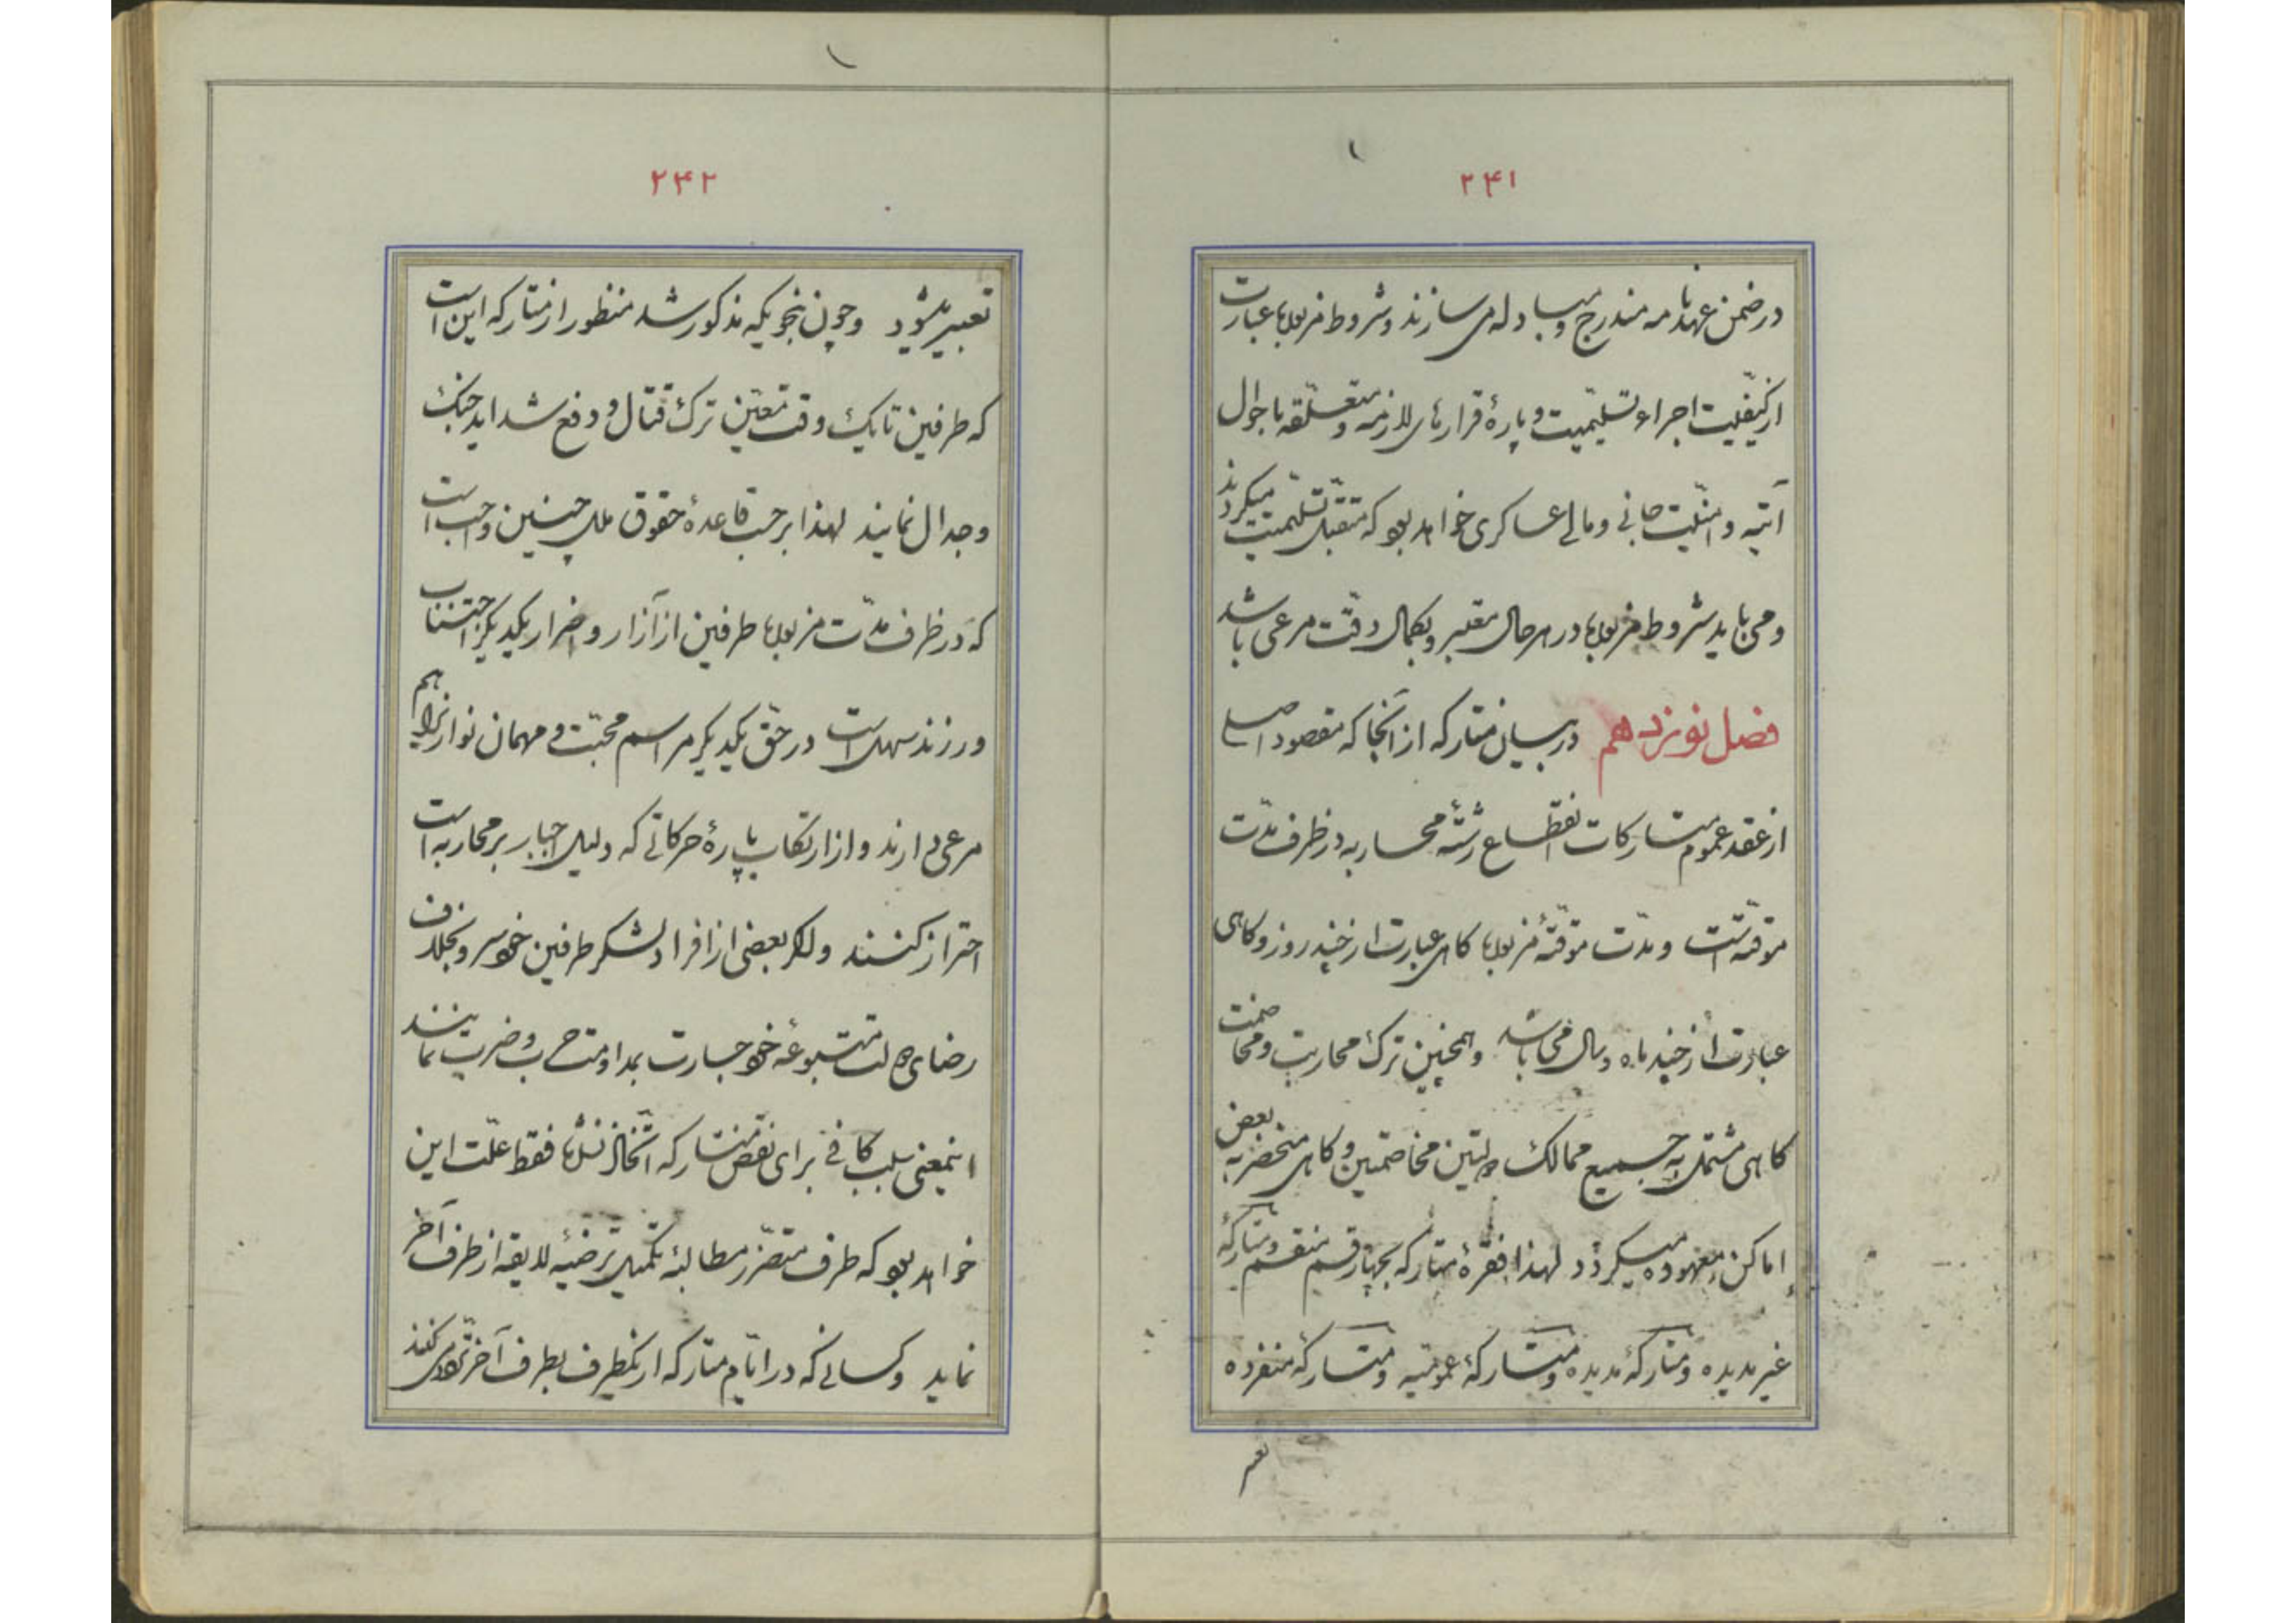 ۲۴۱
در ضمن عهدنامه مندرج و مبادله می سازند و شروط مزبوره عبارت
از کیفیت اجراء تسلیمیت و پارهٔ قرارهای لازمه و متعلقه باحوال
آتیه و امنیت جانی و مالی عساکری خواهد بود که متقبل تسلیمیت میکردند
و می باید شروط مزبوره در هر حال معتبر و بکمال دقت مرعی باشد
فصل نوزدهم در بیان متارکه از آنجا که مقصود اصلی
از عقد عموم متارکات انقطاع رشتهٔ محاربه در ظرف مدت
موقته است و مدت موقتهٔ مزبوره کاهی عبارت از چند روز و کاهی
عبارت از چند ماه و سال می باشد و همچنین ترک محاربت و مخاصمت
کاهی مشتمل به جمیع ممالک دولتین مخاصمتین و کاهی منحصر به بعض
اماکن معهوده میکردد لهذا فقرهٔ متارکه بچهار قسم منقسم و متارکهٔ
غیر مدیده و متارکهٔ مدیده و متارکهٔ عمومیه و متارکهٔ منفرده
تعبیر
۲۴۲
تعبیر میشود و چون بنحویکه مذکور شد منظور از متارکه این است
که طرفین تا یک وقت معین ترک قتال و دفع شداید جنک
و جدال نمایند لهذا بر حسب قاعدهٔ حقوق ملل چنین واجب است
که در ظرف مدت مزبوره طرفین از آزار و اضرار یکدیکر اجتناب
ورزند سهل است در حق یکدیکر مراسم محبت و مهمان نوازی را هم
مرعی دارند و از ارتکاب بپارهٔ حرکاتی که دلیل اجبار بر محاربه است
احتراز کنند و اکر بعضی از افراد لشکر طرفین خودسر و بخلاف
رضای دولت متبوعهٔ خود جسارت بمداومت حرب و ضرب نمایند
اینمعنی سبب کافی برای نقض متارکه اتخاذ نشده فقط علت این
خواهد بود که طرف متضرر مطالبهٔ تکمیل ترضیهٔ لایقه از طرف آخر
نماید و کسانی که در ایام متارکه از یکطرف بطرف آخر می کنند